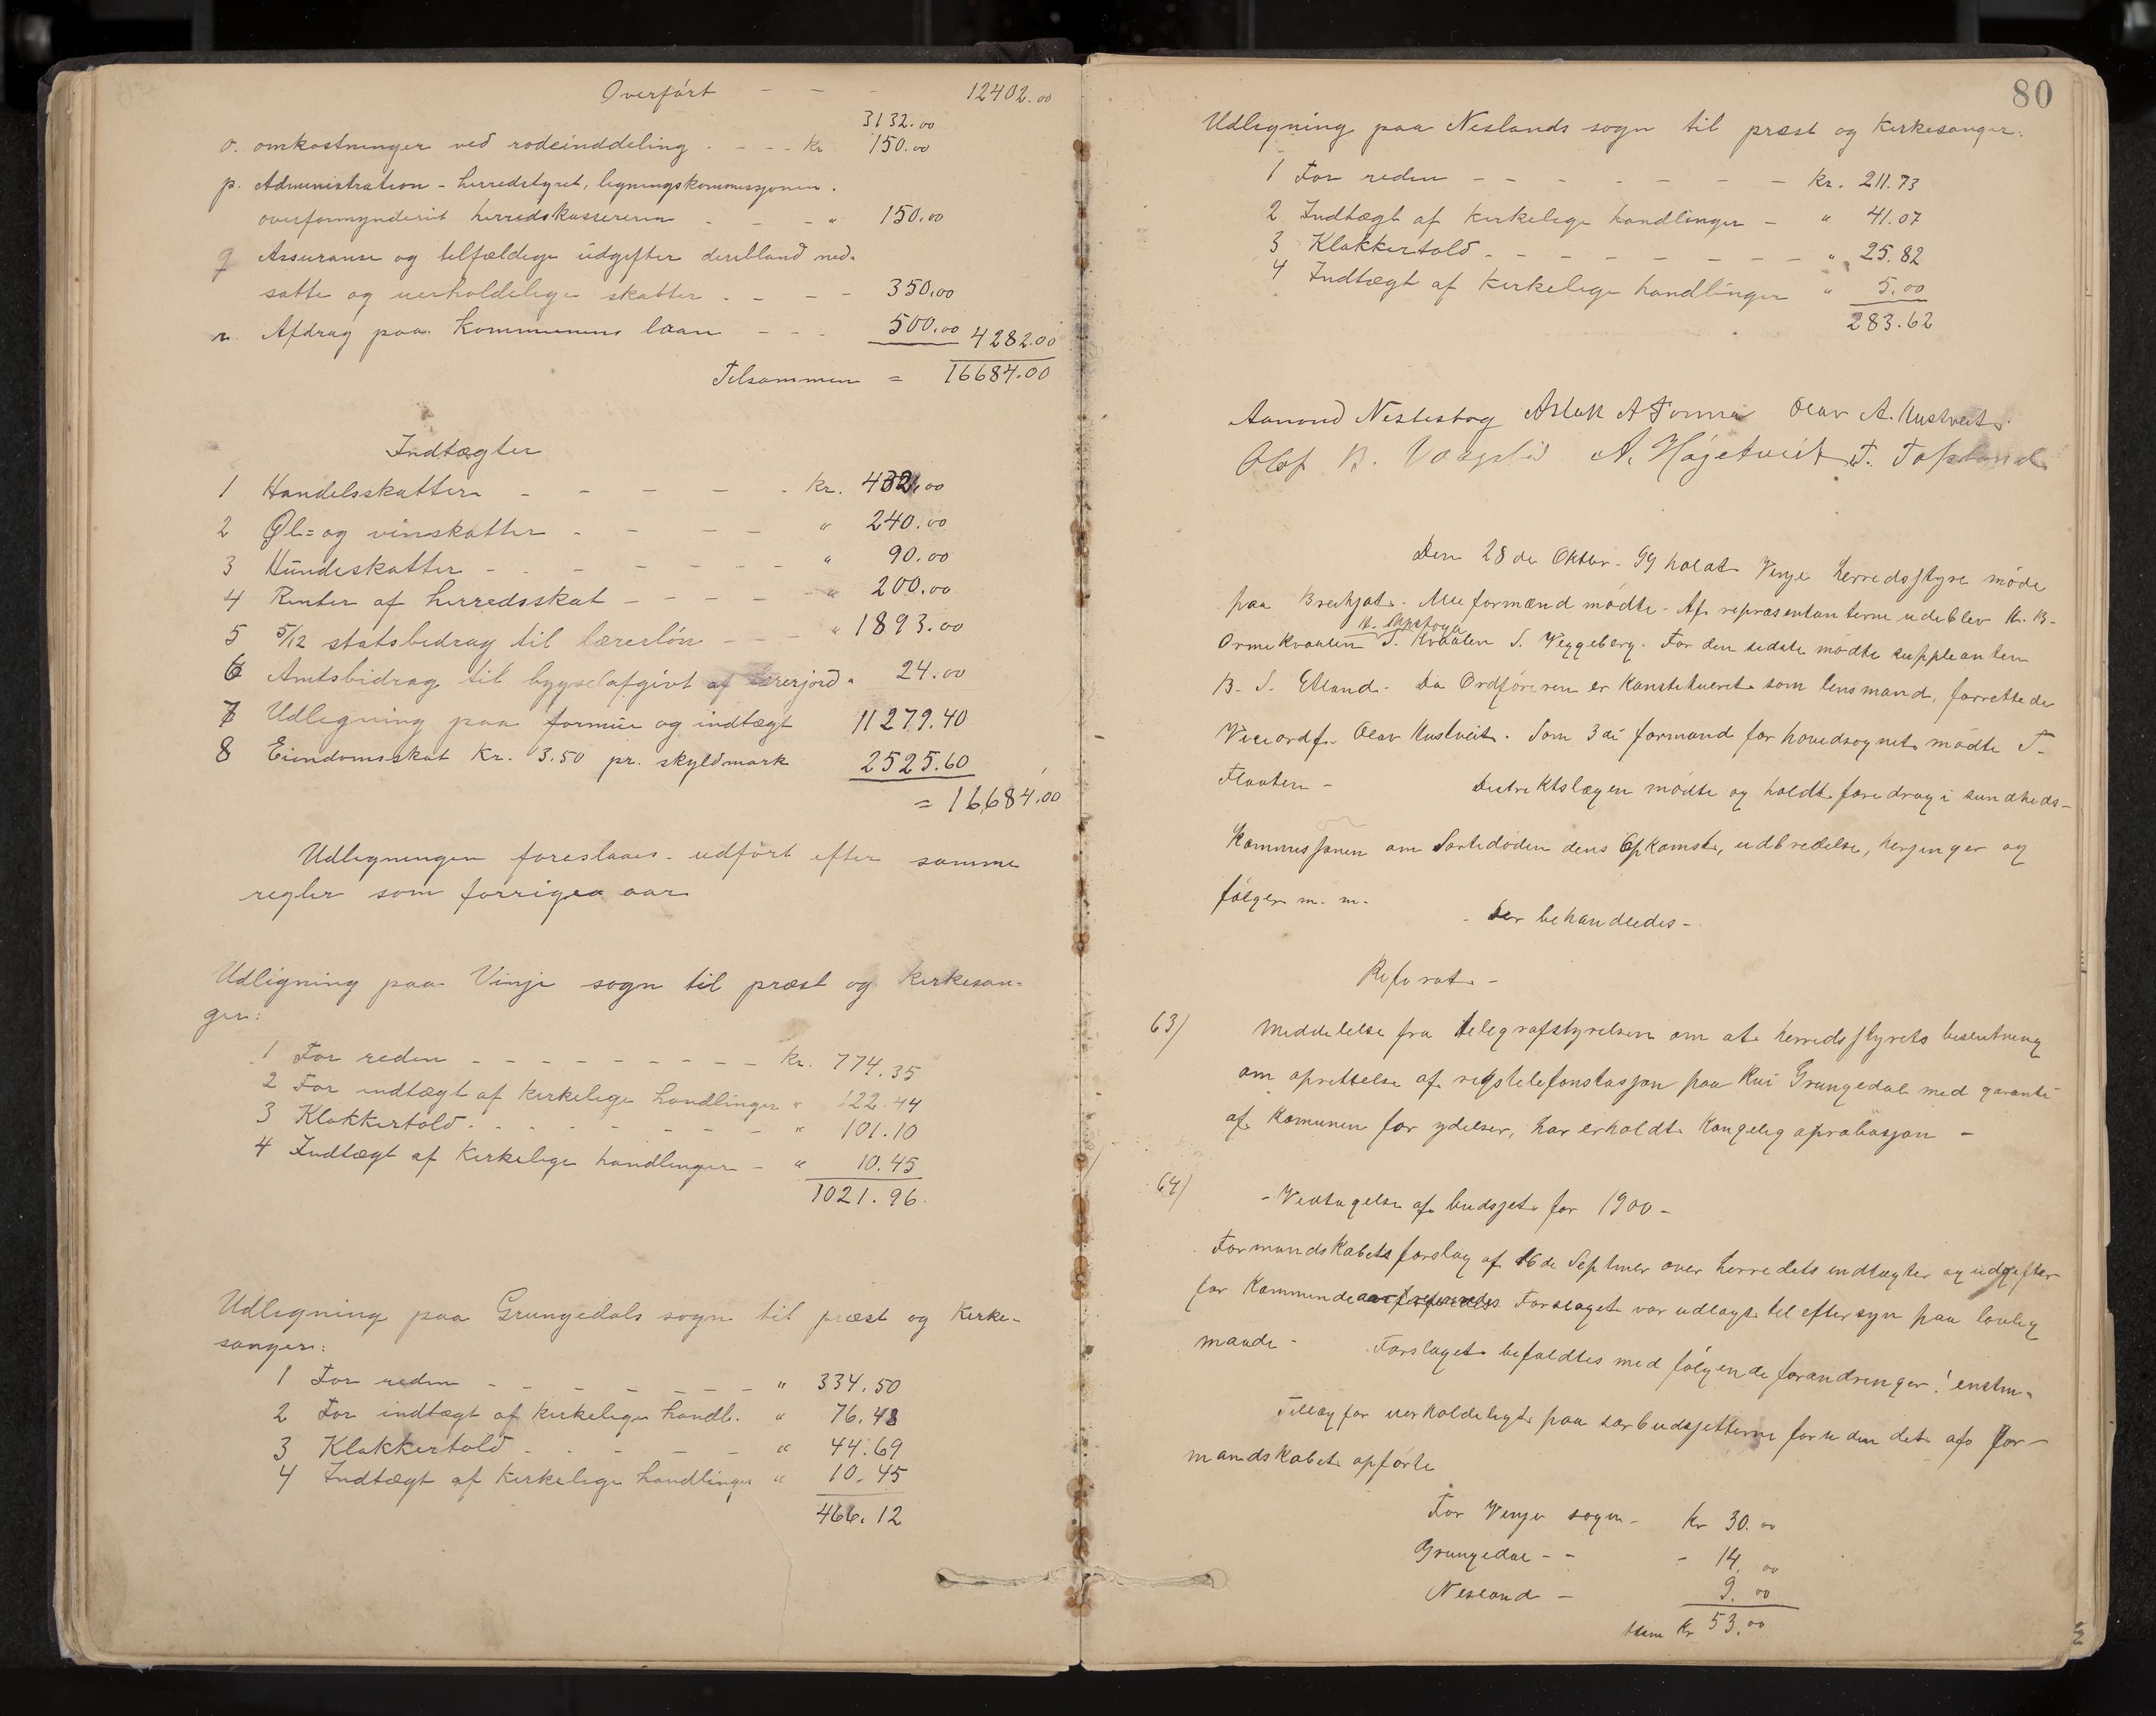 Overført - - - 12402.00
3132.00
o. omkostninger ved rodeinddeling - - - kr 150.00
p. Administration - herredstyret, ligningskommissjonen.
overformynderiet herredskassereren - - - " 150.00
q Assuranse og tilfældige udgifter deribland ned-
satte og uerholdelige skatter - - - 350.00
r. Afdrag paa kommunens laan - - - 500.00 4282.00
Tilsammen = 16684.00
Indtægter
1 Handelsskatter - - - - - kr. 432.00
2 Øl= og vinskatter - - - - " 240.00
3 Hundeskatter - - - - - - " 90.00
4 Renter af herredsskat - - - - - " 200.00
5 5/12 statsbidrag til lærerløn - - - " 1893.00
6 Amtsbidrag til bygselafgivt af lærerjord " 24.00
7 Udligning paa formue og indtægt 11279.40
8 Eiendomsskat kr. 3.50 pr. skyldmark 2525.60
= 16684.00
Udligningen foreslaaes udført efter samme
regler som forrige aar
Udligning paa Vinje sogn til præst og kirkesan-
ger:
1 For reden - - - - - - - - - kr. 774.35
2 For indtægt af kirkelige handlinger " 122.44
3 Klokkertold - - - - - - - - " 101.10
4 Indtægt af kirkelige handlinger - " 10.45
1021.96
Udligning paa Grungedals sogn til præst og kirke-
sanger:
1 For reden - - - - - - - " 334.50
2 For indtægt af kirkelige handl. " 76.48
3 Klokkertold - - - - - " 44.69
4 Indtægt af kirkelige handlinger " 10.45
466.12
80
Udligning paa Neslands sogn til præst og kirkesanger.
1 For reden - - - - - - - - kr. 211.73
2 Indtægt af kirkelige handlinger - " 41.07
3 Klokkertold - - - - - - - - " 25.82
4 Indtægt af kirkelige handlinger " 5.00
283.62
Aanond Nestestog Aslak A Former Olav A. Kustveit
Olaf B. Vaagslid A. Høgetveit T.
Den 28de Oktbr. 99 holdt Vinje herredsstyre møde
paa Alle formænd mødte. Af repræsentanterne udeblev K. B.
Ormekvaalen T. Kvaalen S. Veggeberg. For den sidste mødte suppleanten
B. S. Edland. Da Ordføreren er Konstitueret som lensmand, forrettede
Viceordf. Olav Kustveit. Som 3die formand for hovedsognet mødte T.
Flaaten - Distriktslægen mødte og holdt foredrag i sundheds-
kommissjonen om Sortedøden dens Opkomst, udbredelse, herjinger og
følger m. m.
- Der behandledes -
Referat -
63) Meddelelse fra telegrafstyrelsen om at herredsstyrets beslutning
om oprettelse af rigstelefonstasjon paa Rui Grungedal med garanti
af Komunen for ydelser, har erholdt Kongelig aprobasjon -
64) - Vedtagelse af budsjet for 1900 -
Formandskabets forslag af 16de Septmbr over herredets indtægter og udgifter
for Kommende aar Forslaget var udlagt til eftersyn paa lovlig
maade - Forslaget befaldtes med følgende forandringer! enstm-
Tillæg for uerholdeligt paa særbudsjetterne foruden det af for-
mandskabet opførte
For Vinje sogn - kr 30.00
Grungedal - - - 14.00
Nesland - 9.00
tilsm kr 53.00